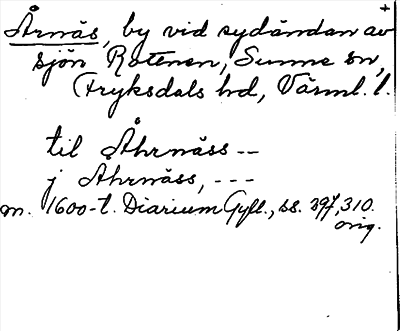 +
Årnäs, by vid sydändan av
sjön Rottnen, Sunne sn,
Fryksdals hd, Värml. l.
til Åhrnäss --
j Åhrnäss, ---
m. 1600-t. Diarium Gyll., ss. 297, 310.
orig.